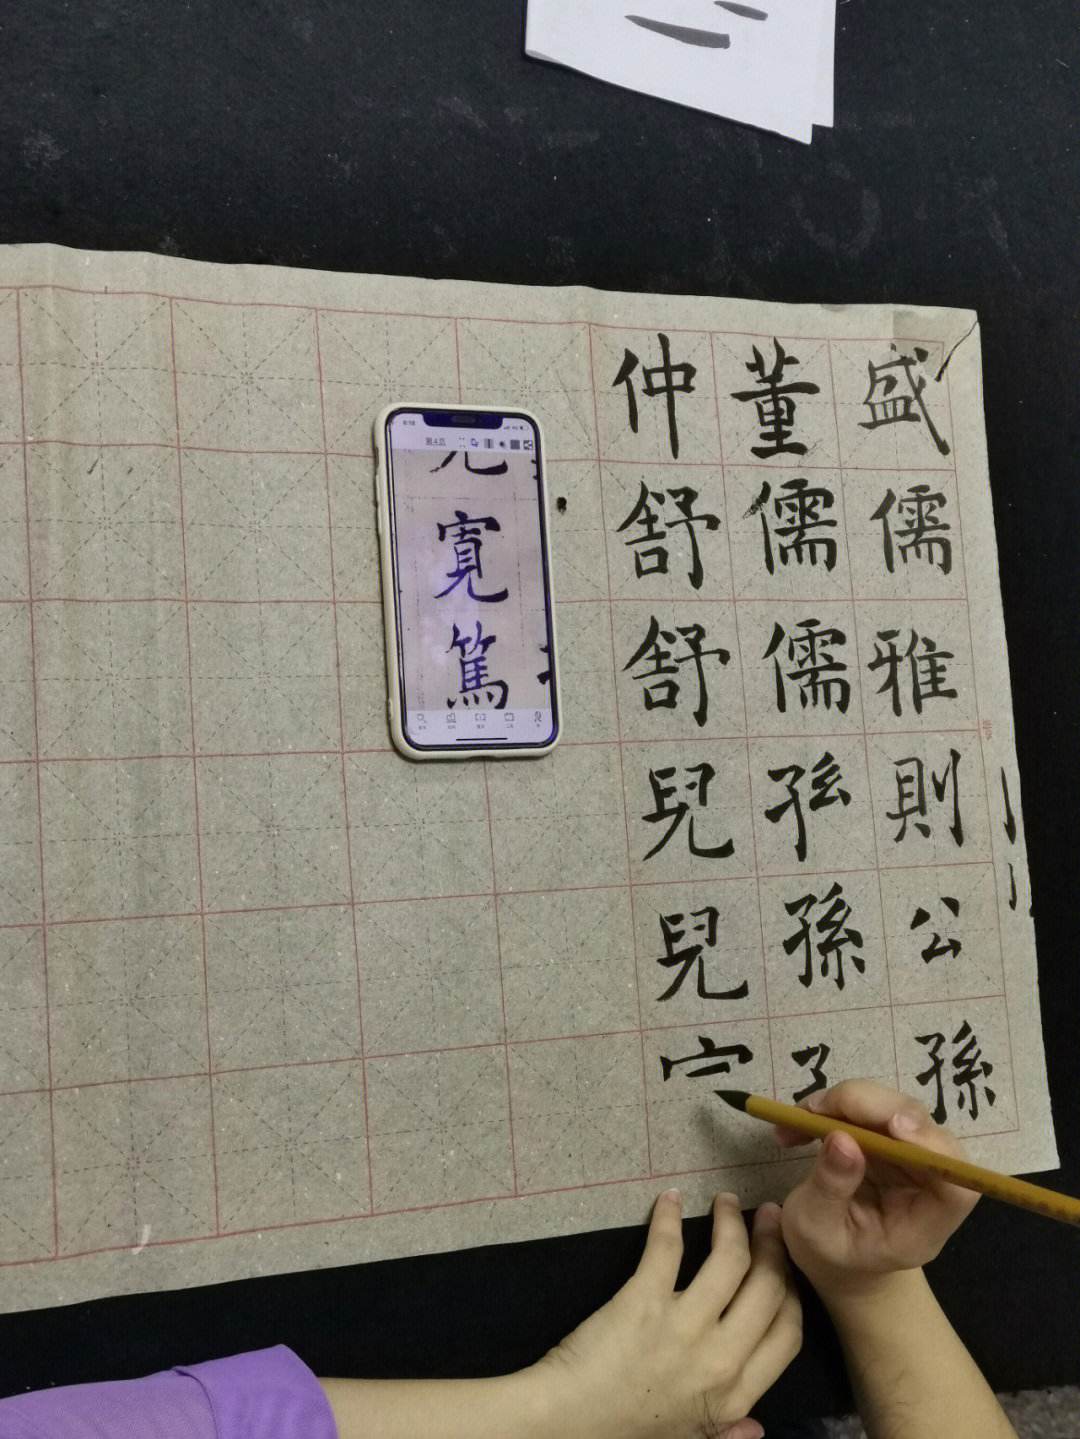 盛儒雅則公孫
董儒儒孫
仲舒舒兒兒
寬篤